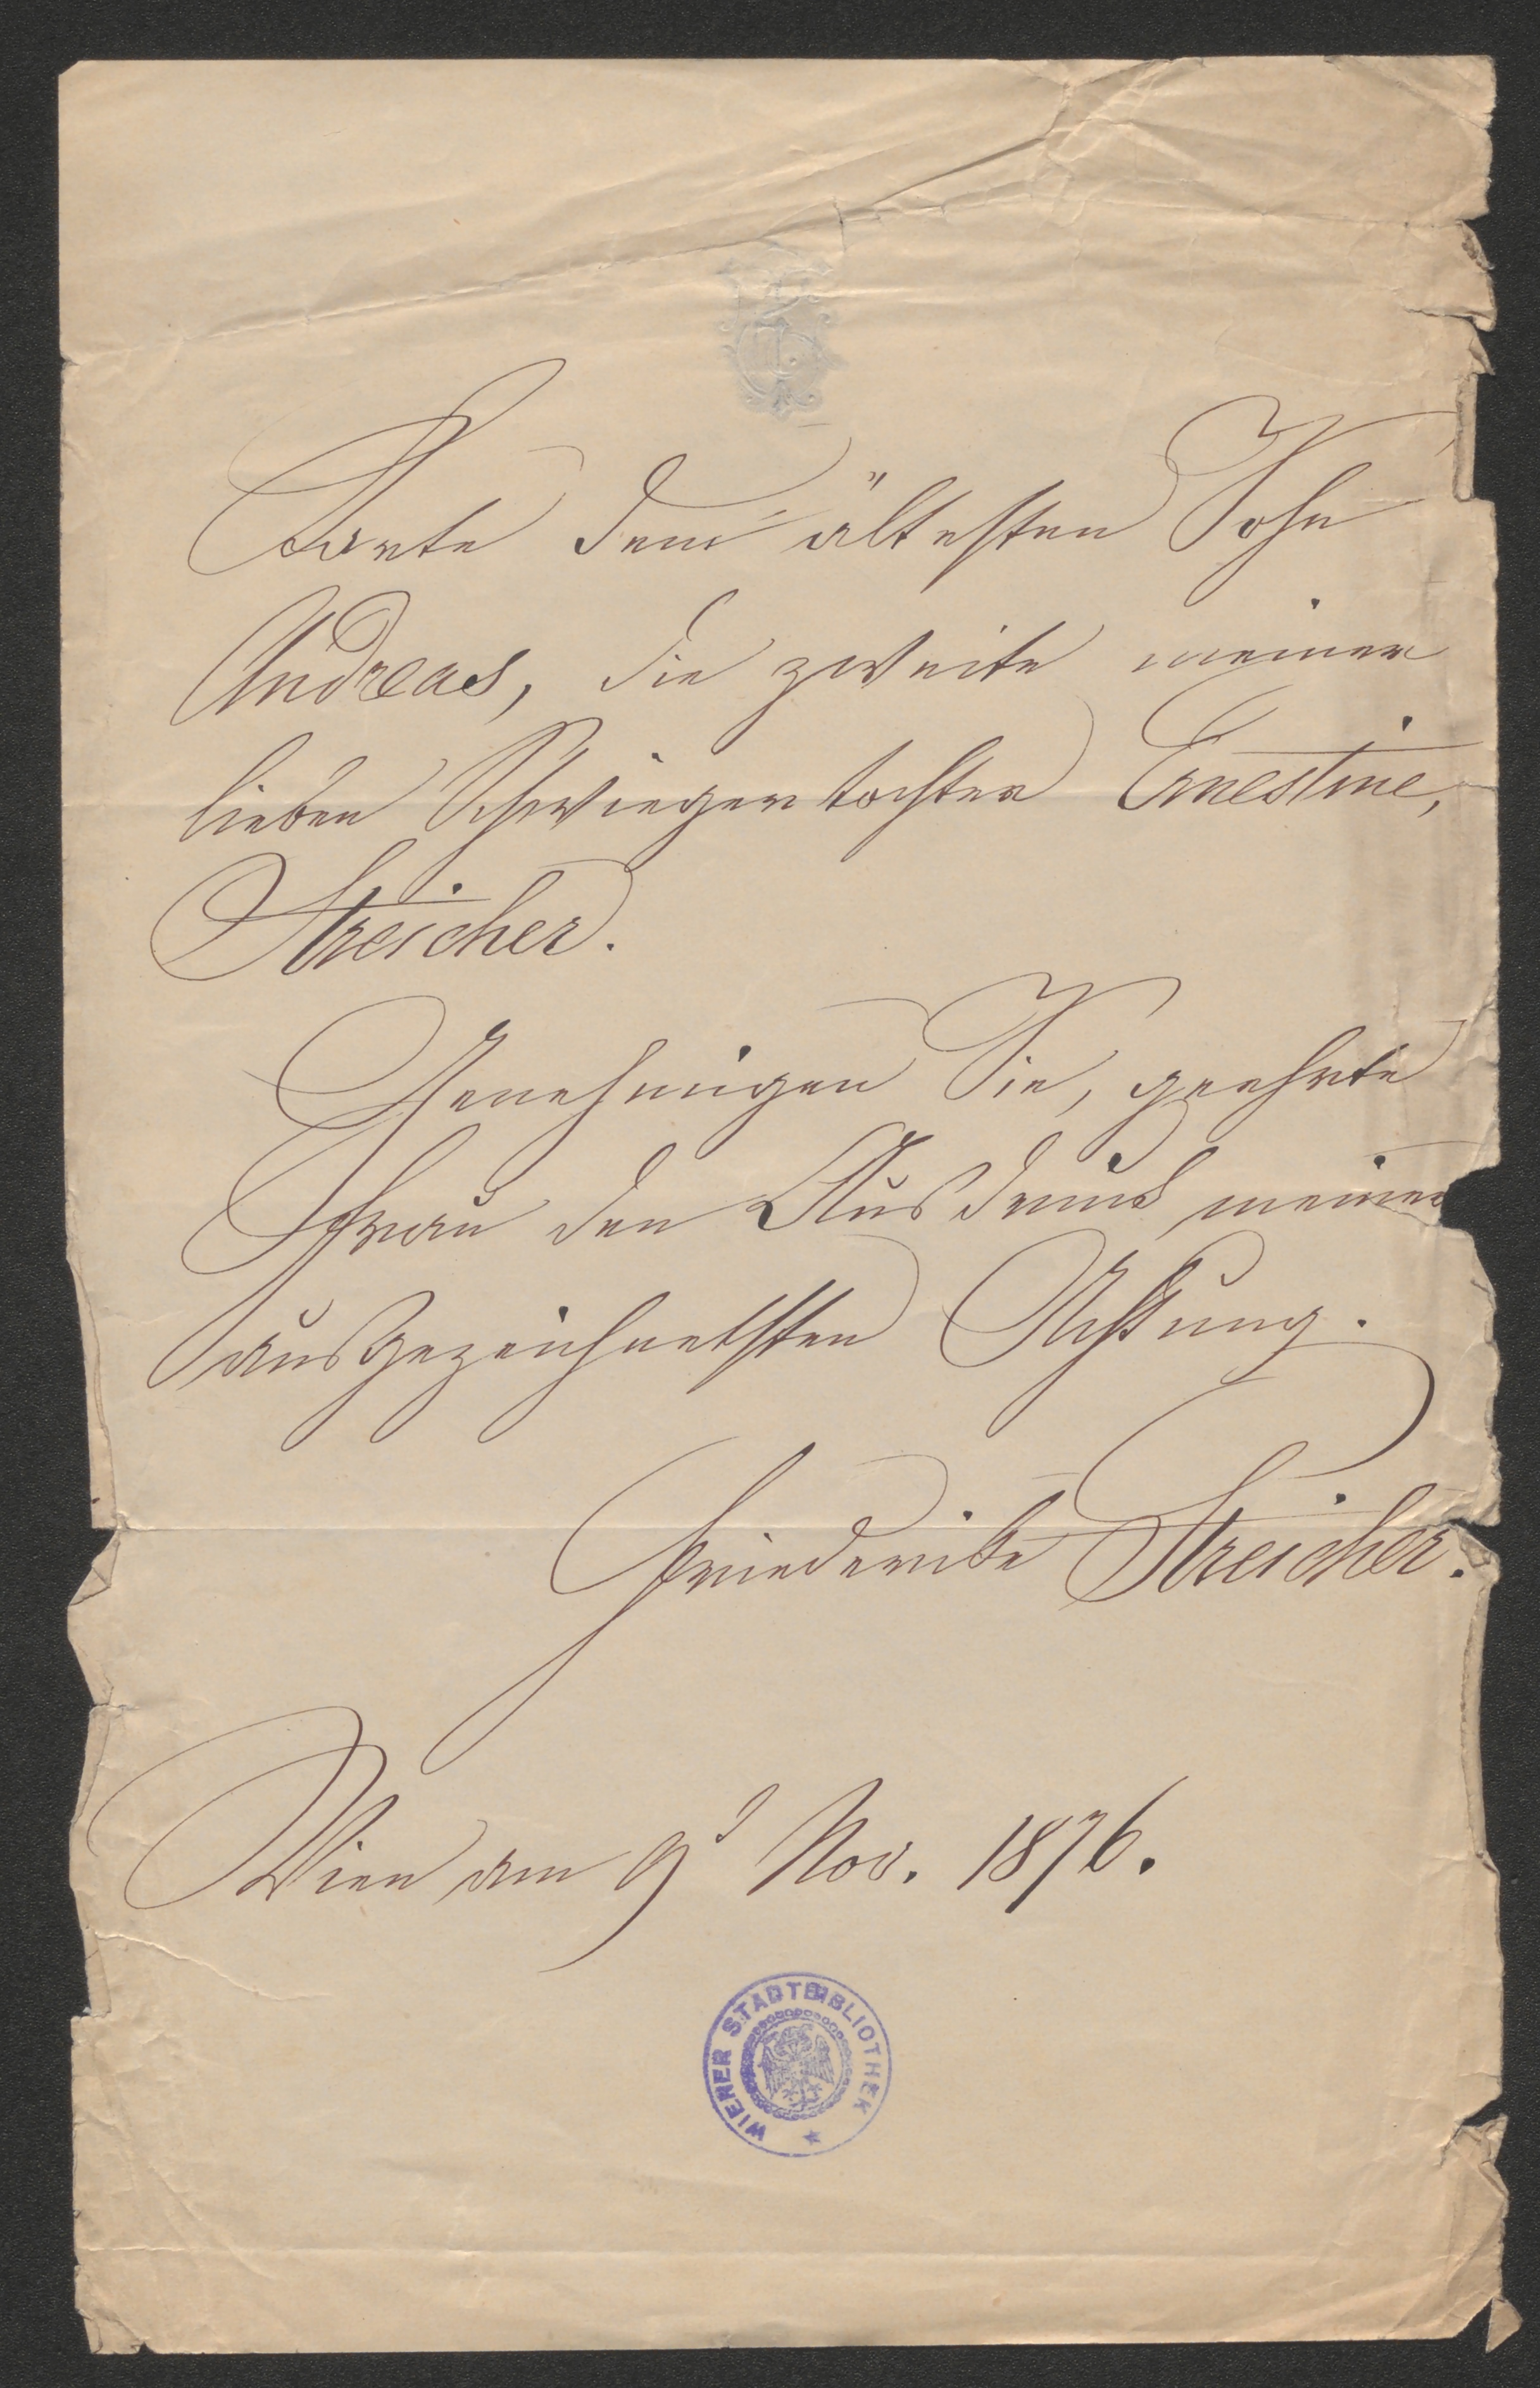 Karte dem ältesten Sohn
Andreas, die zweite meiner
lieben Schwiegertochter Ernestine,
Streicher.
Genehmigen Sie, geehrte
Frau den Ausdruck meiner
ausgezeichnetsten Achtung.
Friederike Streicher.
Wien am 9t Nov. 1876.
WIENER STADTBIBLIOTHEK